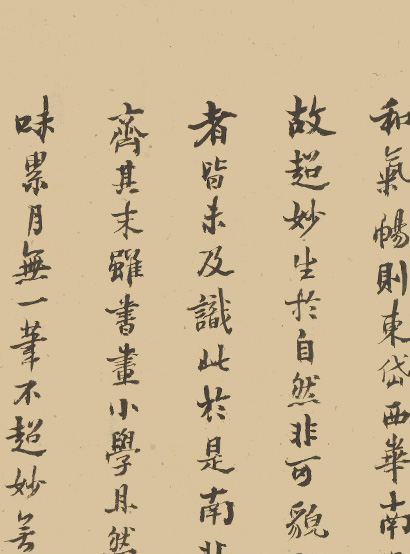 和氣暢則東岱西華南
故超妙生於自然非可貌
者皆未及識此於是南
齊其末雖書畫小學且然
味累月無一筆不超妙